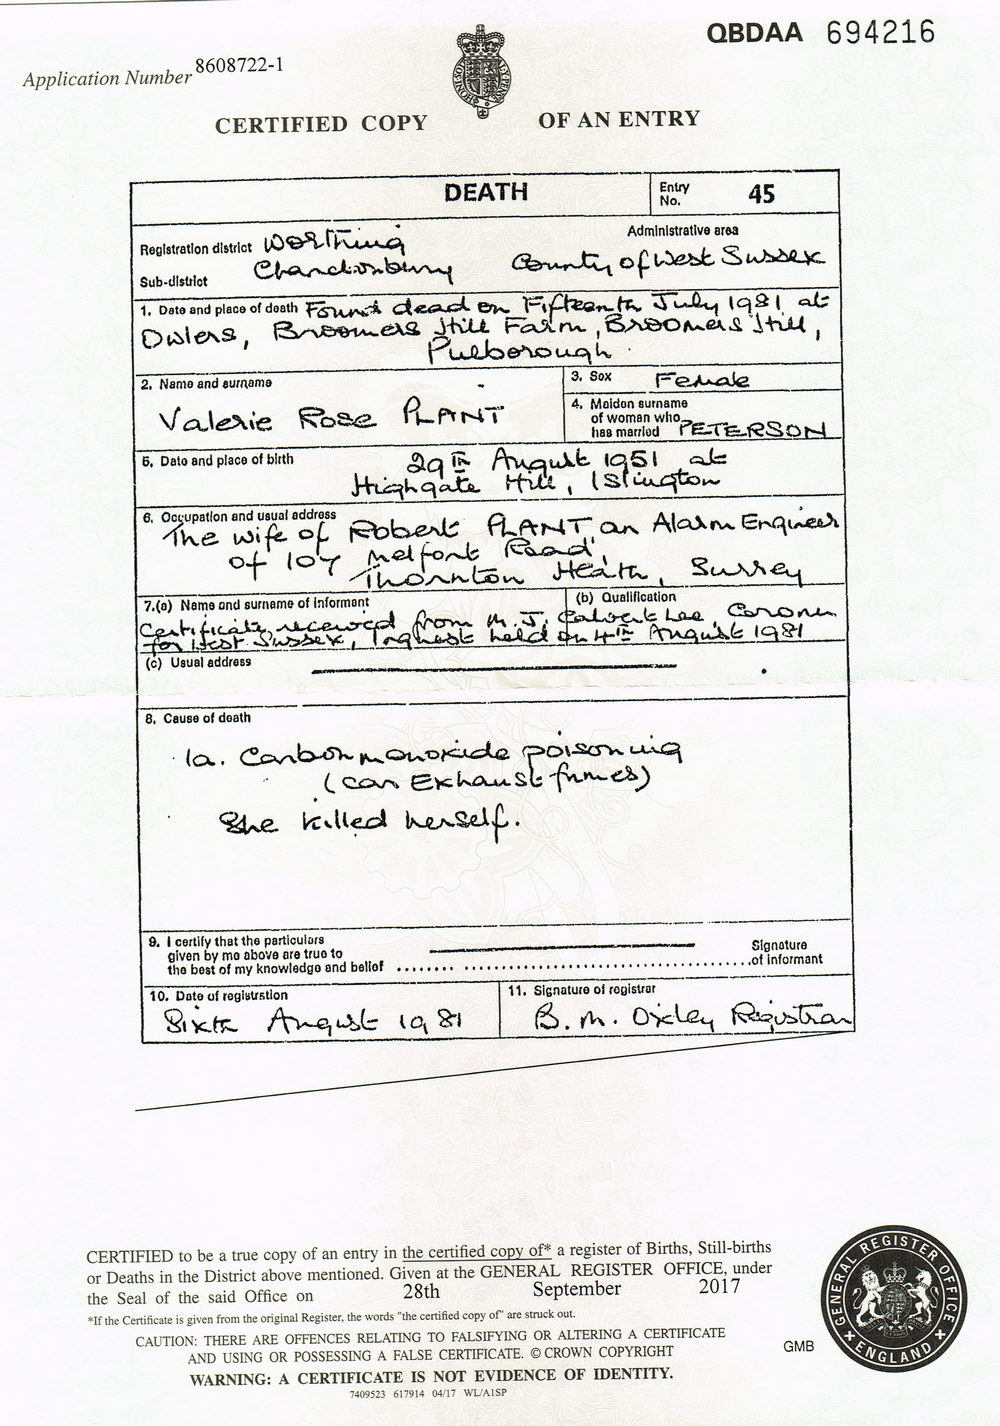 QBDAA 694216
Application Number 8608722-1
CERTIFIED COPY OF AN ENTRY
DEATH
Entry No. 45
Registration district Worthing
Administrative area
Sub-district Chanctonbury
County of West Sussex
1. Date and place of death Found dead on Fifteenth July 1981 at
Owlers, Broomers Hill Farm, Broomers Hill,
Pulborough
2. Name and surname
Valerie Rose PLANT
3. Sex Female
4. Maiden surname
of woman who
has married PETERSON
5. Date and place of birth
29th August 1951 at
Highgate Hill, Islington
6. Occupation and usual address
The wife of Robert PLANT an Alarm Engineer
of 107 Melfort Road,
Thornton Heath, Surrey
7.(a) Name and surname of informant
(b) Qualification
Certificate received from M. J. Calvert Lee, Coroner
for West Sussex, Inquest held on 4th August 1981
(c) Usual address
8. Cause of death
1a. Carbon monoxide poisoning
(car Exhaust fumes)
She killed herself.
9. I certify that the particulars
given by me above are true to
the best of my knowledge and belief
Signature
of informant
10. Date of registration
Sixth August 1981
11. Signature of registrar
B. M. Oxley Registrar
CERTIFIED to be a true copy of an entry in the certified copy of* a register of Births, Still-births
or Deaths in the District above mentioned. Given at the GENERAL REGISTER OFFICE, under
the Seal of the said Office on 28th September 2017
*If the Certificate is given from the original Register, the words "the certified copy of" are struck out.
CAUTION: THERE ARE OFFENCES RELATING TO FALSIFYING OR ALTERING A CERTIFICATE
AND USING OR POSSESSING A FALSE CERTIFICATE. © CROWN COPYRIGHT
WARNING: A CERTIFICATE IS NOT EVIDENCE OF IDENTITY.
7409523 617914 04/17 WL/A1SP
GMB
GENERAL REGISTER OFFICE
ENGLAND